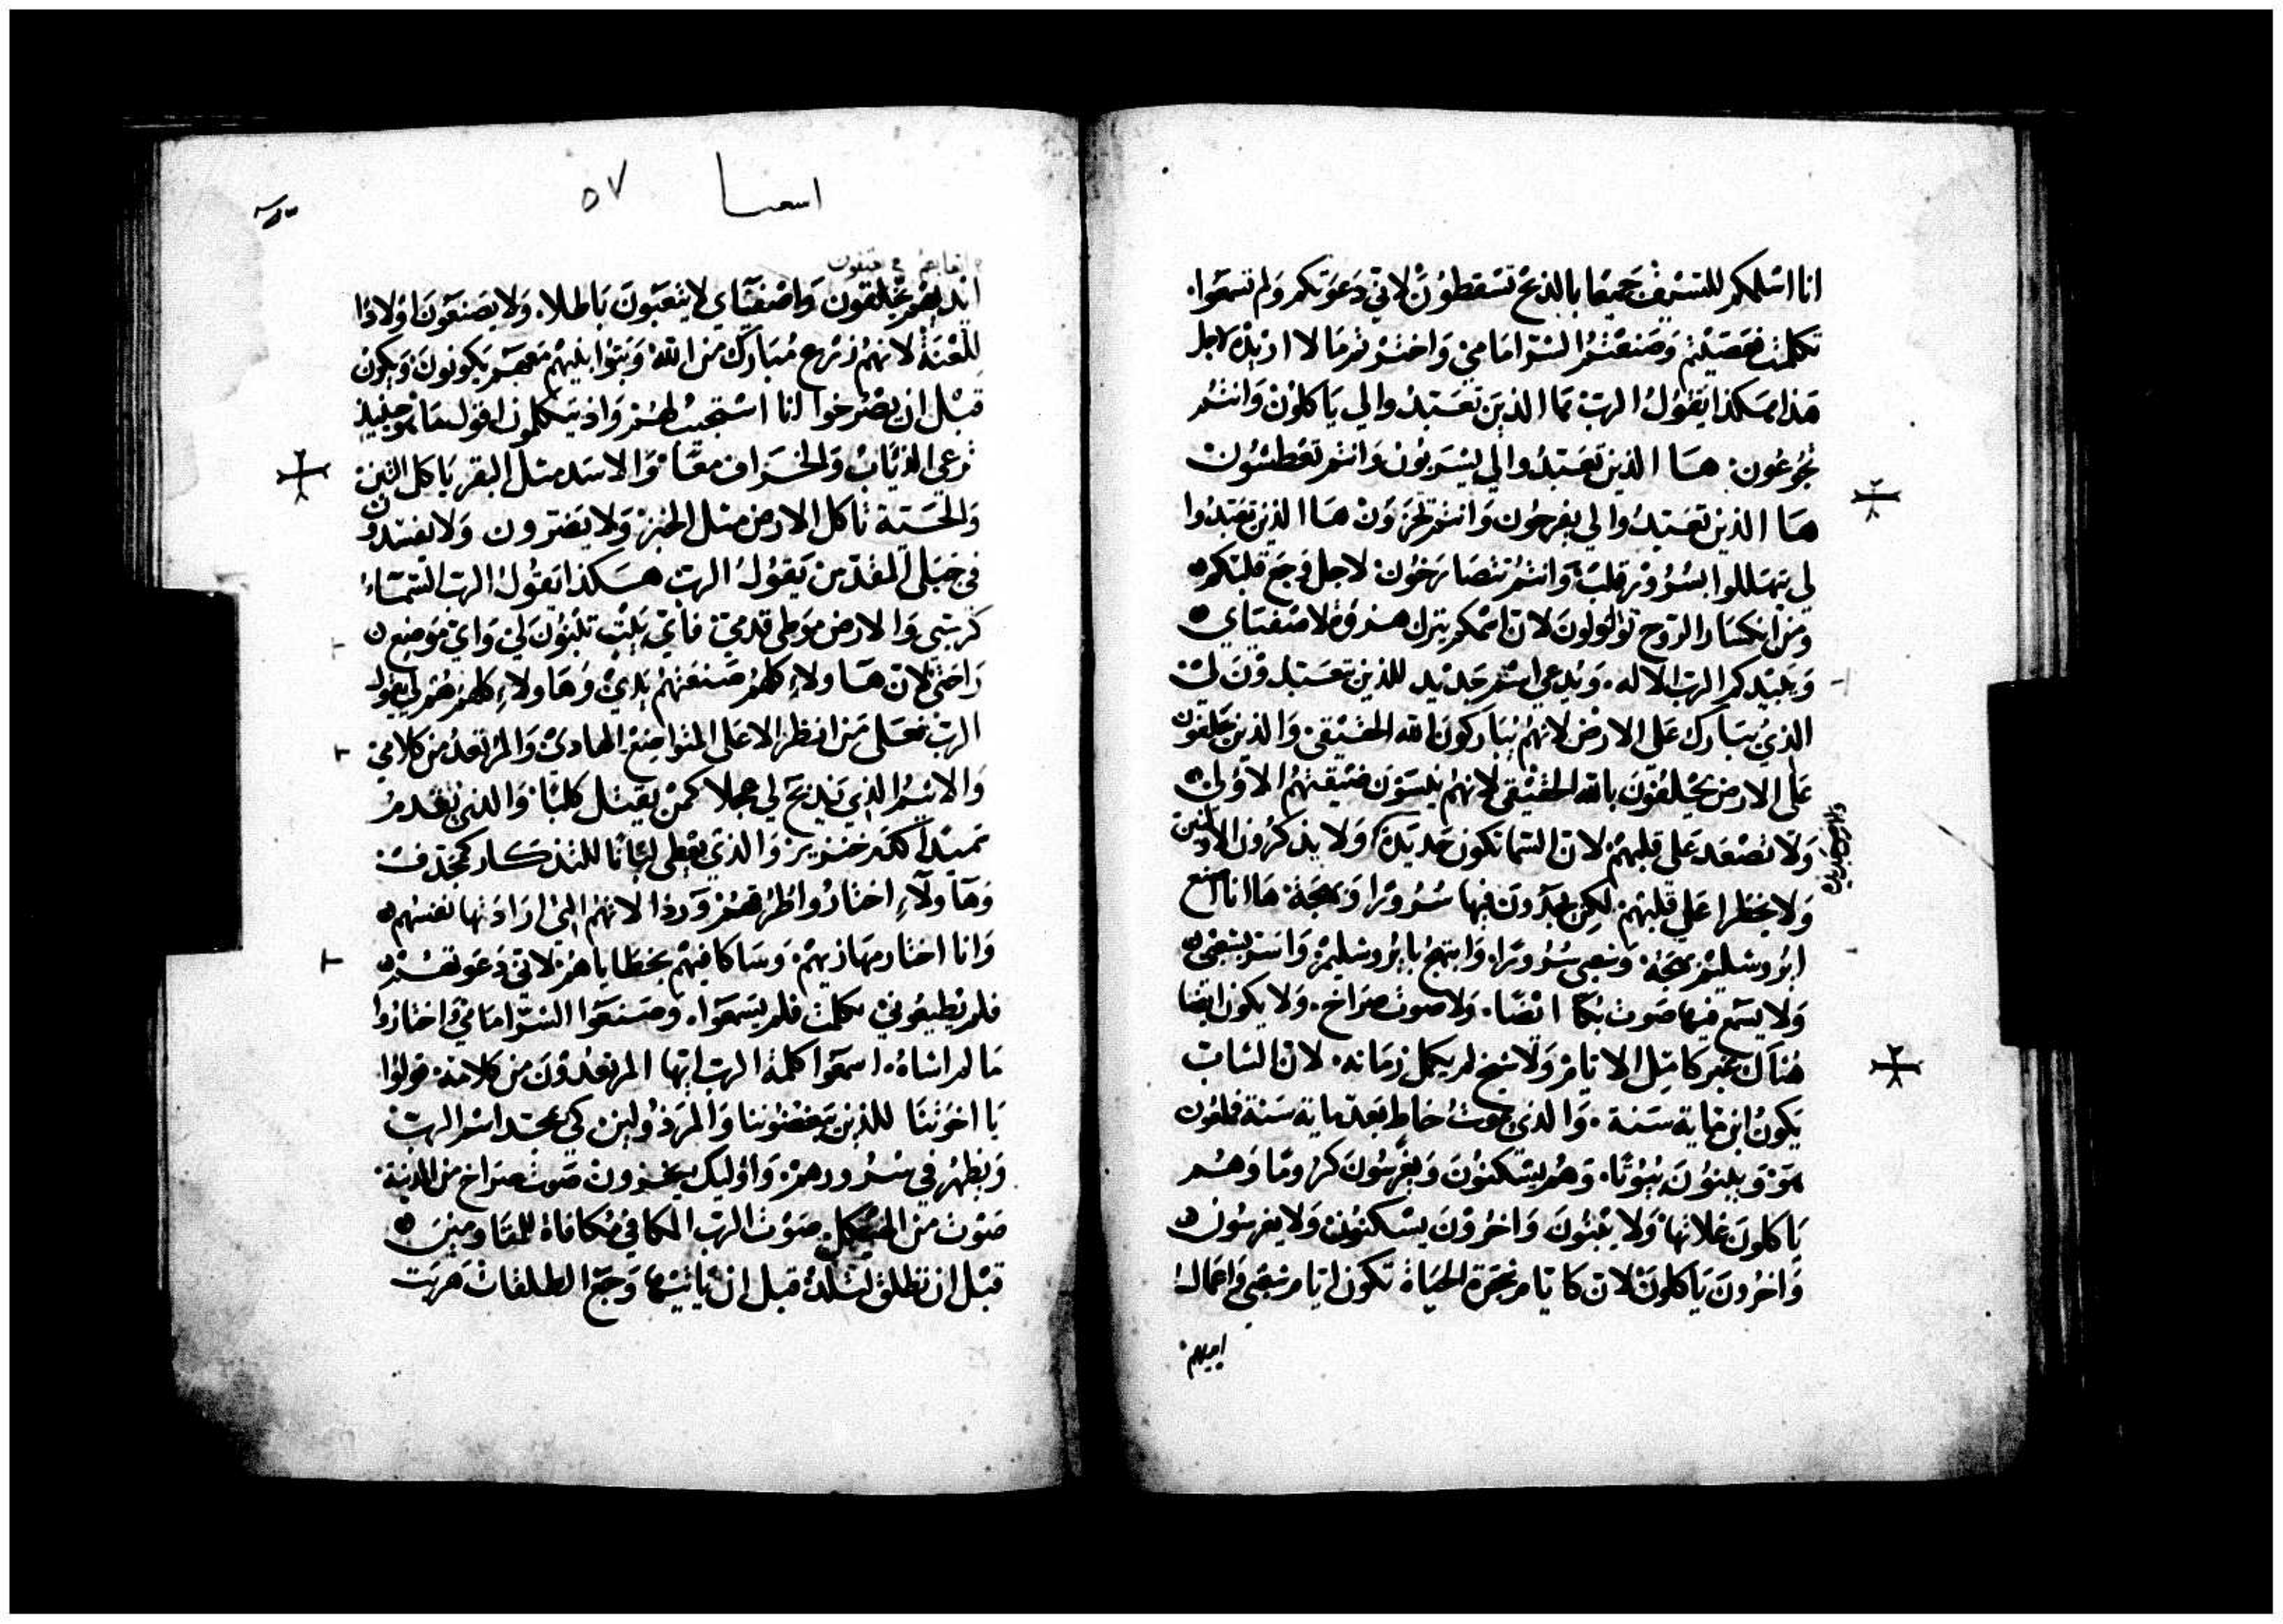 انا اسَلمكم للسَّيف جَميعًا بالذبح تسقطوُنْ لاني دَعَوتكم وَلم تسمَعوا.
تكلمت فعَصَيْتم وَصَنعْتمُ الشرّ امَامي وَاخترْتم مَا لا اريدْ لاجل
هَذا هَكذا يَقوُلُ الربّ هَا الذين تعَبّدوا لي يَاكلوُنْ وَانتمُ
تجُوعُون. هَا الذين تعَبّدُوا لي يَشربُونْ وَانتم تعَطشُونْ
هَا الذين تعَبّدُوا لي يفرحُون وَانتم تحزنَوُنْ هَا الذين تعَبّدُوا
لي يتهَللوا بسُرُوْر قلب وَانتمُ تتصَارَخُون لاجل وَجَع قلبكم
وَمن انكسَار الرّوح توَلولونَ لانّ اسْمكم يترك هزؤ لاصْفيَاي
وَيبيّدكم الربّ الاله. وَيُدعي اسْم جَديد للذين تعَبّدوْن لي
الذيْ يتبَارك عَلى الارْض لانهُمْ يُبَاركونَ الله الحَقيْقي وَالذين يحَلفوْن
عَلى الارض يحْلفُوْنَ بالله الحَقيْقي لانهمُ ينسَوْنَ ضيْقتهُمُ الاوُلى
وَلا تصْعَد عَلى قلبهمْ لانّ السّما تكون جَديَدة وَلا يذكرُون الاوّلين
والارض جديده
وَلا يخطر عَلى قلبَهمْ لكن يجدُونَ فيها سُرُورًا وَبَهجَة هَا انا اصنع
ايرُوشليْم بهجَة وَشعبي سُرُورًا. وَابتهجُ بايرُوشليمْ وَاسَر بشعبي
وَلا يسمَع فيها صَوت بُكا ايْضًا. وَلا صَوت صرَاخ. وَلا يكون ايضًا
هُنَاكَ غير كامِل الايّامْ وَلا شيخ لم يكمل زمَانه. لانّ الشاب
يَكونُ ابن مَاية سَنة. وَالذي يموتُ خاط بَعدْ مَاية سَنة ملعُون
هَوْ وَيبنوُنَ بيُوتًا. وَهُم يسْكنوُنَ وَيغرسُونَ كرُومًا وَهُم
يَاكلونَ غلاتهَا وَلا يَبنوُنَ وَاخَرُوْنَ يسْكنوُن وَلا يغرسُون
وَاخرُونَ يَاكلوُنْ لانّ كايّام شجَرة الحيَاة تكون ايّام شعَبي وَاعمَال
ايديهم
اسعيا ٥٧
ايديهم يخلقون وَاصْفيَاي لا يتعَبُونَ بَاطلا. وَلا يصنعُونَ اوْلادًا
للعْنَة لانهمُ زَرع مُبَارك من الله وَبنوا بنيهمْ مَعهمْ يَكونوُنَ وَيكون
قبْل ان يصْرخوا انا اسْتجيبُ لهمُ وَاذ يتكلمون اقول مَا هو حينيذ
ترعي الذيَابْ وَالخرَاف معًا وَالاسَد مثل البقر يَاكل التبن
وَالحَيّة تاكل الارض مثل الخبز وَلا يَضرون وَلا يفسدون
في جَبلي المقدّس يَقوُلُ الربّ هَكذا يَقوُل الربّ السّمَاءُ
كرسي وَالارض موَطي قدمَيّ فاي بَيْت تبنُوَن لي وَايّ مَوضِع
رَاحتي لانّ هَاولاءِ كلهمُ صَنعَتهمُ يَديْ وَهَاولاءِ كلهمُ هُم لي يقول
الربّ فعَلى مَن انظر الا عَلى المتواضِع الهَاديْ وَالمرتعدُ من كلامي
وَالاثيمُ الذي يَذبَح لي عجلا كمنْ يقتل كلبًا وَالذي يُقدمُ
سَميْدًا كدَم خنزير وَالذي يعُطي لبَانًا للتذكار كمجَدف
وَهَاولاءِ اختارُوا طرُقهمُ وَرذالاتهمُ التي ارَادَتها نفسهُم
وَانا اختار مهازيهمْ. وَسَاكافيهمْ بخطَاياهمُ لاني دَعَوتهُمْ
فلم يُطيعُوني تكلمت فلم يسَمعَوا. وَصَنعَوا الشرّ امَامي وَاختارُوا
مَا لم اشاهُ. اسمعَوا كلمَة الربّ ايّها المرتعدُوْنَ من كلامَه. قولوُا
يَا اخوَتنَا للذين يَبغضوننا وَالمرَذوُلين كي يمجد اسْم الربّ
وَيظهرْ في سُرُورهمْ. وَاوُليك يخزون صَوت صرَاخ من المدينة
صَوْت من الهَيْكل صَوْت الربّ المكافي مكافاة للمقاومينَ
قبْل ان تطلق لتلد قبل ان يَاتيهَا وَجع الطلقات هَربَت